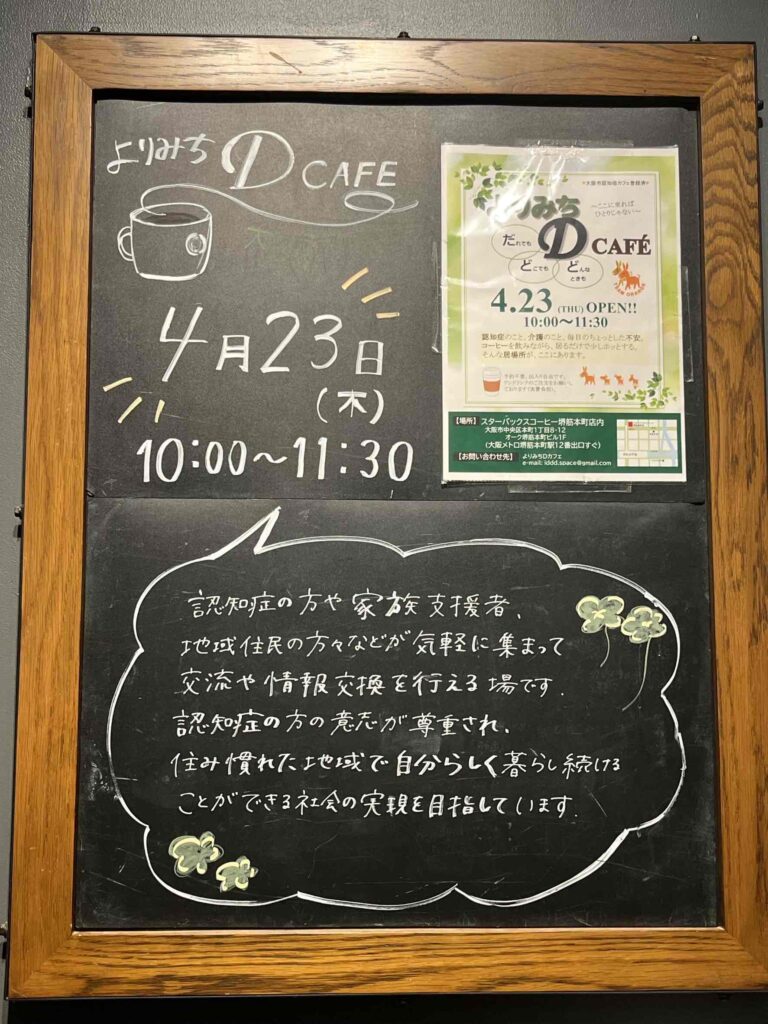 よりみち D CAFE
4月23日
(木)
10:00〜11:30
※大阪市認知症カフェ登録済※
よりみち
〜ここに来れば
ひとりじゃない〜
D CAFÉ
だれでも
どこでも
どんな
ときも
4.23 (THU) OPEN!!
10:00〜11:30
認知症のこと、介護のこと、毎日のちょっとした不安。
コーヒーを飲みながら、居るだけで少しホッとする。
そんな居場所が、ここにあります。
予約不要、出入り自由です。
【場所】スターバックスコーヒー堺筋本町店内
大阪市中央区本町1丁目8-12
オーク堺筋本町ビル1F
(大阪メトロ堺筋本町駅12番出口すぐ)
【お問い合わせ先】 よりみちDカフェ
e-mail: iddd.space@gmail.com
認知症の方や家族支援者、
地域住民の方々などが気軽に集まって
交流や情報交換を行える場です.
認知症の方の意志が尊重され、
住み慣れた地域で自分らしく暮らし続ける
ことができる社会の実現を目指しています.